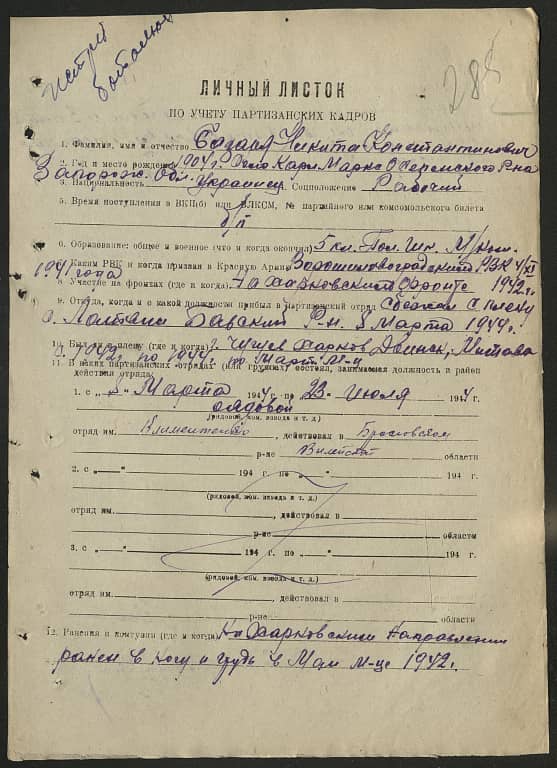 285
ЛИЧНЫЙ ЛИСТОК
ПО УЧЕТУ ПАРТИЗАНСКИХ КАДРОВ
1. Фамилия, имя и отчество Никита Константинович
2. Год и место рождения 1904 г. Карл Маркс Р-на
Запорож. обл.
3. Национальность Украинец Соцположение Рабочий
5. Время поступления в ВКП(б) или ВЛКСМ, № партийного или комсомольского билета
б/п
6. Образование: общее и военное (что и когда окончил) 5 кл.
7. Каким РВК и когда призван в Красную Армию Ворошиловградский РВК
1941 года
8. Участие на фронтах (где и когда) На Харковском фронте 1942 г.
9. Откуда, когда и с какой должности прибыл в партизанский отряд Сбежал с плену
Р-н. 8 Марта 1944 г.
10. Был ли в плену (где и когда) г. Чугуев Харков Двинск, Митава
с 1942 г. по 1944 г. по Март М-ц
11. В каких партизанских отрядах (или группах) состоял, занимаемая должность и район
действия отряда:
1. с „ 8 “ Марта 1944 г. по 23 Июля 1944 г.
рядовой
(рядовой, ком. взвода и т. д.)
отряд им. , действовал в Браславском
р-не Вилейской области
2. с „ “ 194 г. по „ “ 194 г.
(рядовой, ком. взвода и т. д.)
отряд им. , действовал в
р-не области
3. с „ “ 194 г. по „ “ 194 г.
(рядовой, ком. взвода и т. д.)
отряд им. , действовал в
р-не области
12. Ранения и контузии (где и когда) На Харковским направлении
ранен в ногу и грудь в Мае М-це 1942 г.